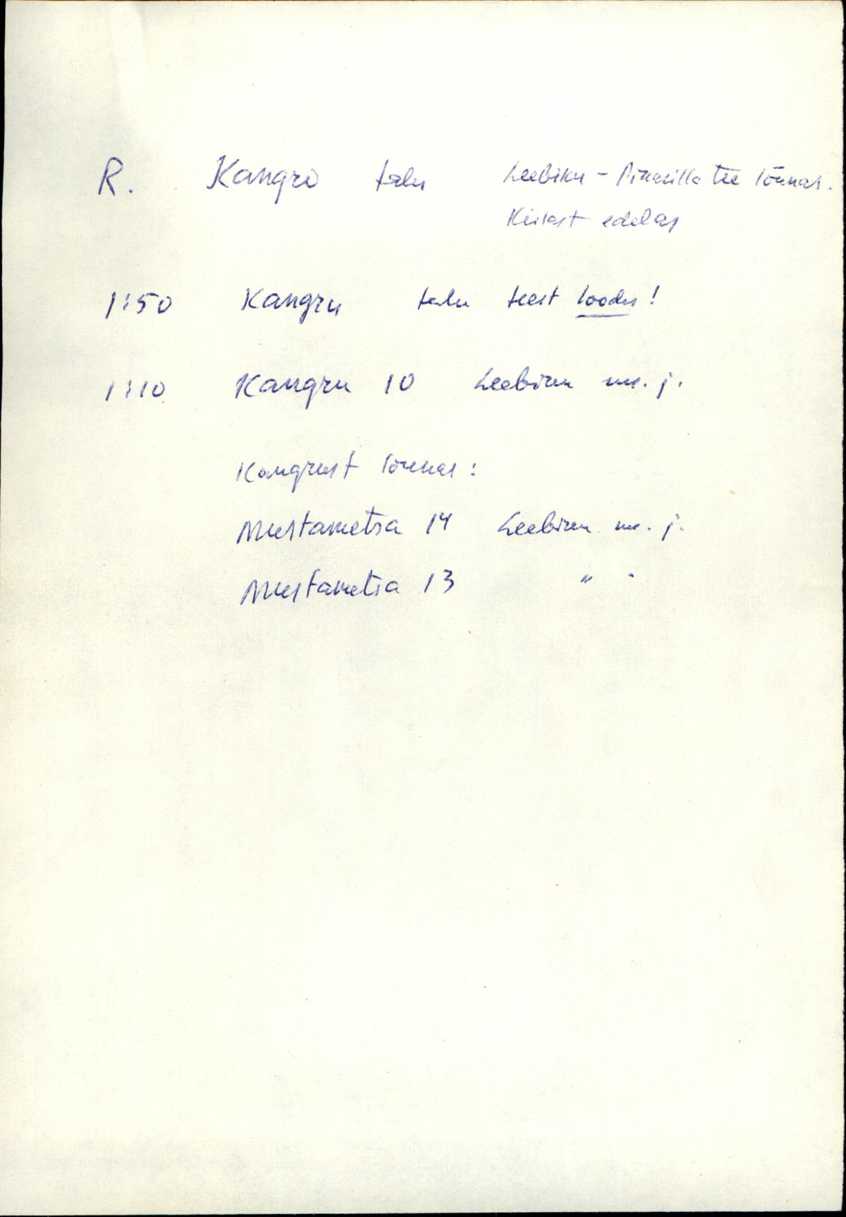 R. Kangro talu Leebiku - Pikasilla tee lõunas.
Kiilast edelas
1:50 Kangru talu teest loodes!
1:10 Kangru 10 Leebiku mk. j.
Kangrust lõunas:
Mustametsa 14 Leebiku mk. j.
Mustametsa 13 " "